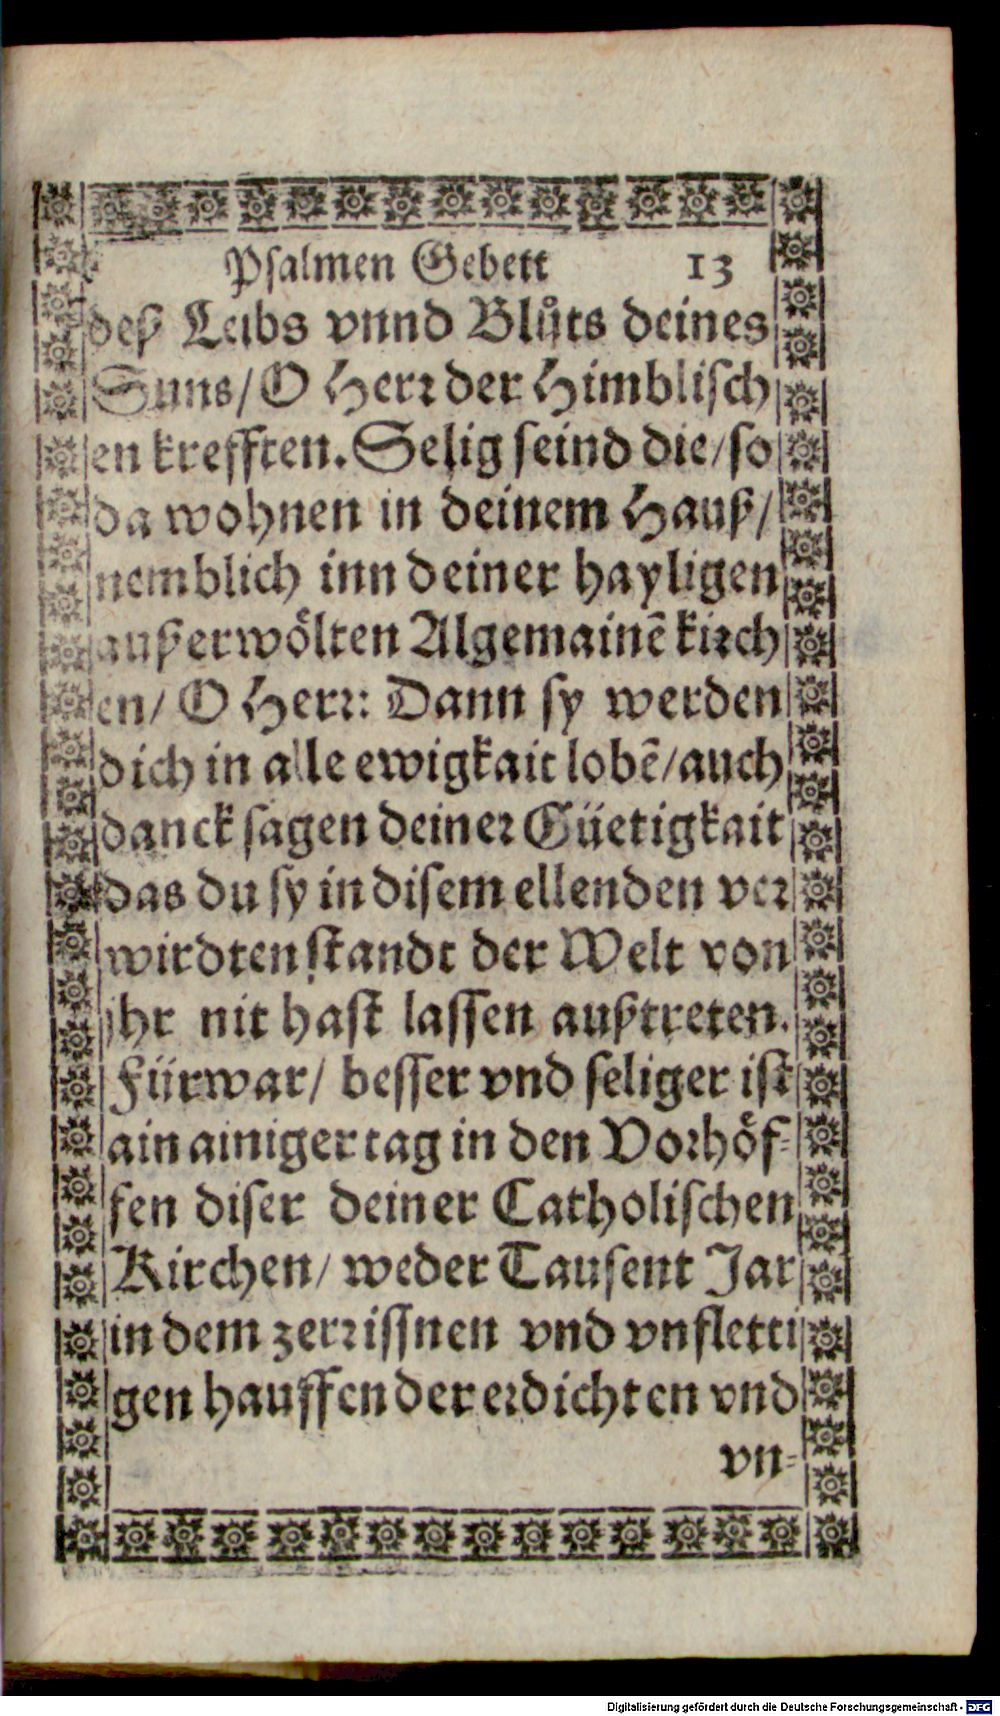 Psalmen Gebett 13
deß Leibs vnnd Blůts deines
Suns/ O Herr der Himblisch
en krefften. Selig seind die/ so
da wohnen in deinem Hauß/
nemblich inn deiner hayligen
außerwölten Algemainē kirch
en/ O Herr: Dann sy werden
dich in alle ewigkait lobē/ auch
danck sagen deiner Güetigkait
das du sy in disem ellenden ver
wirdten standt der Welt von
jhr nit hast lassen außtreten.
Fürwar/ besser vnd seliger ist
ain ainiger tag in den Vorhöf-
fen diser deiner Catholischen
Kirchen/ weder Tausent Jar
in dem zerrissnen vnd vnfletti
gen hauffen der erdichten vnd
vn-
Digitalisierung gefördert durch die Deutsche Forschungsgemeinschaft - DFG